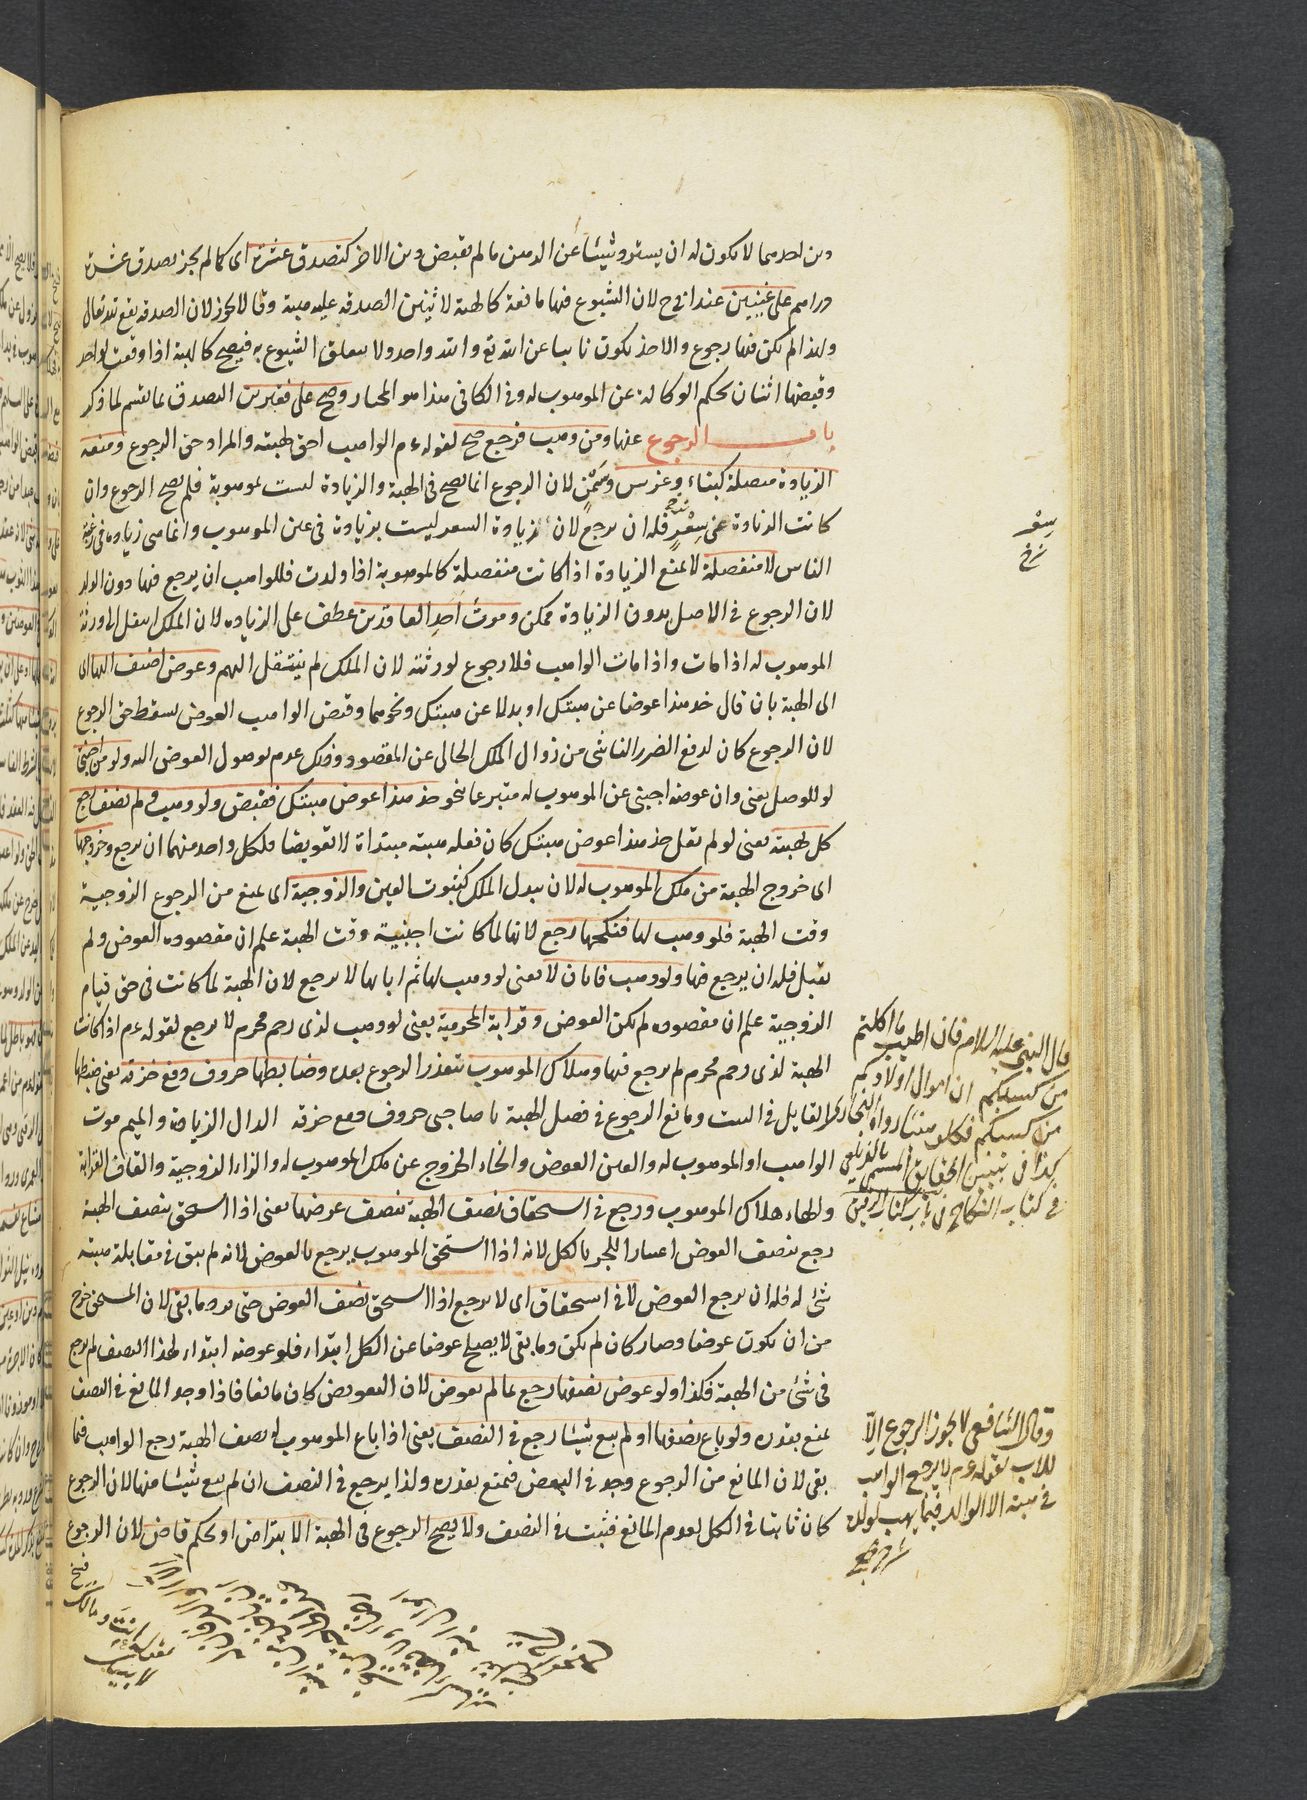 دين احدهما لا يكون له ان يشترى شيئا عن الدين ما لم يقبض دين الاخر كتصدق عشرة اى كما لم يجز تصدق عشرة
دراهم على غنيين عند ابى ح لان الشيوع فيها مانعة كالهبة لاثنين الصدقة عليه هبة وقالا يجوز لان الصدقة تقع لله تعالى
ولهذا لم يكن فيها رجوع والاخذ يكون نايبا عن الله تع والله واحد ولا يتعلق الشيوع به فيصح كالهبة اذا وقعت لواحد
وقبضها اثنان بحكم الوكالة عن الموهوب له وفى الكافى هذا هو المختار وصح على فقيرين التصدق بما يقسم لما ذكر
باب الرجوع عنها ومن وهب فرجع صح لقوله ءم الواهب احق بهبته والمراد حق الرجوع ومنعه
الزيادة متصلة كبناء وغرس وسمن لان الرجوع انما يصح فى الهبة والزيادة ليست بموهوبة فلم يصح الرجوع وان
كانت الزيادة فى سعر فله ان يرجع لان زيادة السعر ليست بزيادة فى عين الموهوب وانما هى زيادة فى رغبة
الناس لا منفصلة لا تمنع الزيادة اذا كانت منفصلة كالموهوبة اذا ولدت فللواهب ان يرجع فيها دون الولد
لان الرجوع فى الاصل بدون الزيادة ممكن وموت احد العاقدين عطف على الزيادة لان الملك ينتقل الى ورثة
الموهوب له اذا مات واذا مات الواهب فلا رجوع لورثته لان الملك لم ينتقل اليهم وعوض اضيف اليها اى
الى الهبة بان قال خذ هذا عوضا عن هبتك او بدلا عن هبتك ونحوهما وقبض الواهب العوض يسقط حق الرجوع
لان الرجوع كان لدفع الضرر الناشى من زوال الملك الخالى عن المقصود وذلك عدم بوصول العوض اليه ولو من اجنبى
لو للوصل يعنى وان عوضه اجنبى عن الموهوب له متبرعا نحو خذ هذا عوض هبتك فقبض ولو وهب ولم يضف رجع
كل بهبته يعنى لو لم يقل خذ هذا عوض هبتك كان فعله هبة مبتداة لا تعويضا فلكل واحد منهما ان يرجع وخروجها
اى خروج الهبة من ملك الموهوب له لان تبدل الملك كتبدل العين والزوجية اى تمنع من الرجوع الزوجية
وقت الهبة فلو وهب لها فنكحها رجع لانها لما كانت اجنبية وقت الهبة علم ان مقصوده العوض ولم
يقبل فله ان يرجع فيها ولو وهب فابان لا يعنى لو وهب لها ثم ابانها لا يرجع لان الهبة لما كانت فى حق قيام
الزوجية علم ان مقصوده لم يكن العوض وقرابة المحرمية يعنى لو وهب لذى رحم محرم لا يرجع لقوله ءم اذا كانت
الهبة لذى رحم محرم لم يرجع فيها وهلاك الموهوب لتعذر الرجوع بعده وضابطها حروف دمع خزقه يعنى ضبطها
القايل فى البيت ومانع الرجوع فى فصل الهبة يا صاحبى حروف دمع خزقه الدال الزيادة والميم موت
الواهب او الموهوب له والعين العوض والخاء الخروج عن ملك الموهوب له والزاء الزوجية والقاف القرابة
والهاء هلاك الموهوب ورجع فى استحقاق نصف الهبة بنصف عوضها يعنى اذا استحق نصف الهبة
رجع بنصف العوض اعتبارا للجزء بالكل لانه اذا استحق الموهوب يرجع بالعوض لانه لم يبق فى مقابلة هبته
شئ له فله ان يرجع العوض لا فى استحقاق اى لا يرجع اذا استحق نصف العوض حتى يرد ما بقى لان المستحق خرج
من ان يكون عوضا وصار كان لم يكن وما بقى لا يصلح عوضا عن الكل ابتداء فلو عوضه ابتداء لهذا النصف لم يرجع
فى شئ من الهبة فكذا ولو عوض نصفها رجع بما لم يعوض لان التعويض كان مانعا فاذا وجد المانع فى النصف
تمنع بقدره ولو باع نصفها او لم يبع شيئا رجع فى النصف يعنى اذا باع الموهوب له نصف الهبة رجع الواهب فيما
بقى لان المانع من الرجوع وجد فى البعض فيمتنع بقدره ولذا يرجع فى النصف ان لم يبع شيئا منها لان الرجوع
كان ثابتا فى الكل لعدم المانع فيثبت فى النصف ولا يصح الرجوع فى الهبة الا بتراض او بحكم قاض لان الرجوع
فسخ
سعر
نرخ
قال النبى عليه السلام فان اطيب ما اكلتم
من كسبكم ان اموال اولادكم
من كسبكم فكلوا هنيئا رواه البخارى
كذا فى تبيين الحقايق المسمى بالزيلعى
فى كتاب النكاح فى باب نكاح الرقيق
وقال الشافعى لا يجوز الرجوع الا
للاب لقوله ءم لا يرجع الواهب
فى هبته الا الوالد فيما يهب لولده
انت ومالك
لابيك